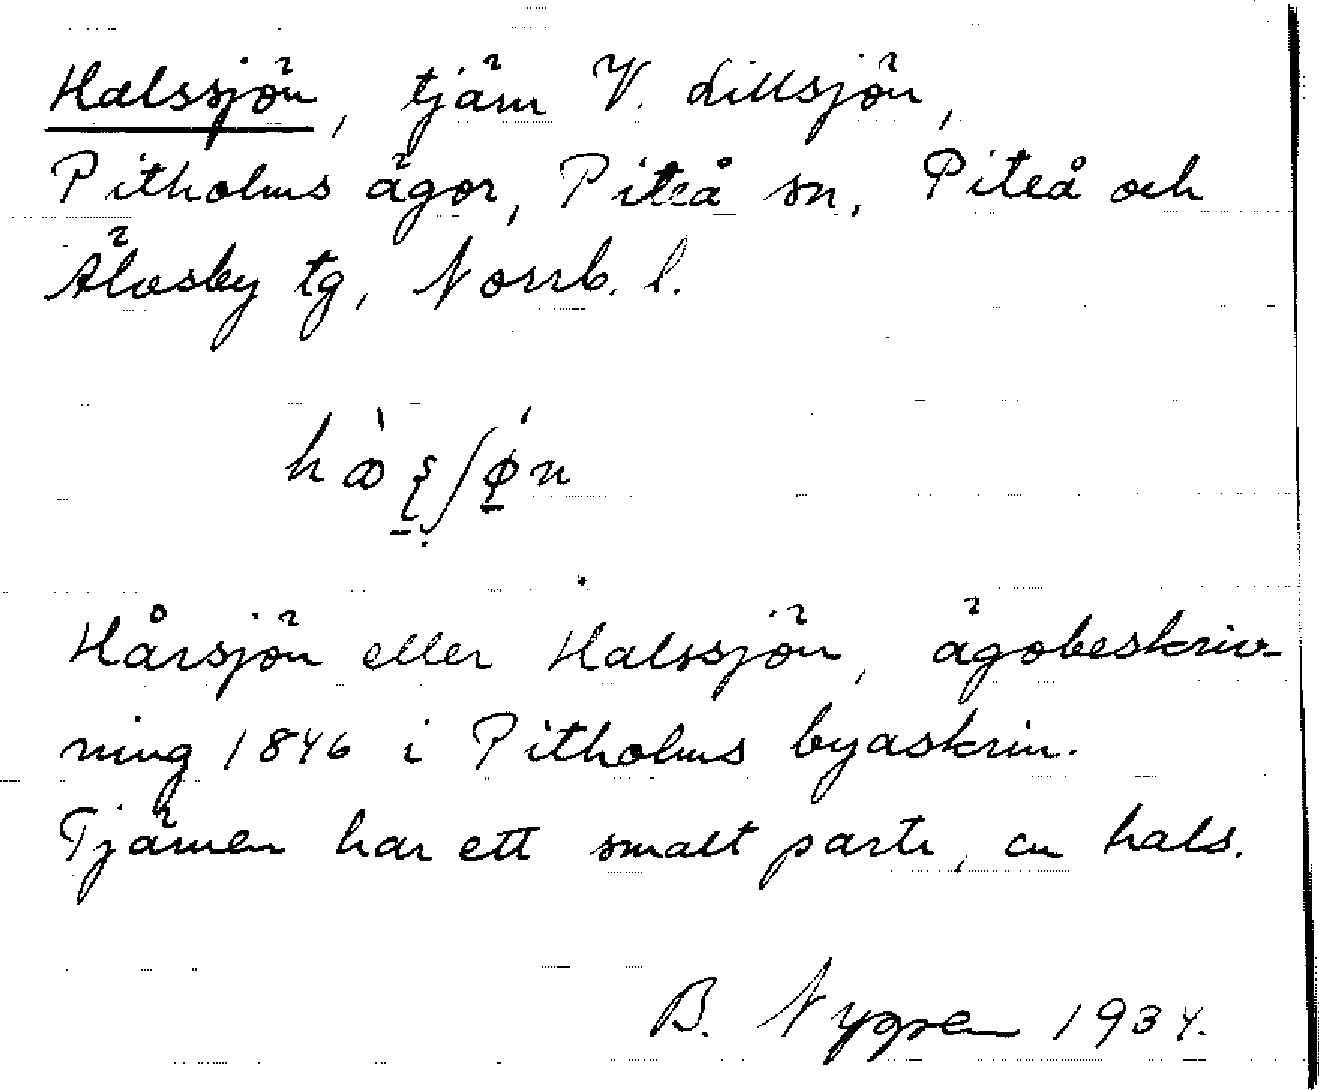 Halssjön, tjärn V. Lillsjön,
Pitholms ägor, Piteå sn, Piteå och
Älvsby tg, Norrb. l.
Hårsjön eller Halssjön, ägobeskriv-
ning 1846 i Pitholms byaskrin.
Tjärnen har ett smalt parti, en hals.
B. Nygren 1934.